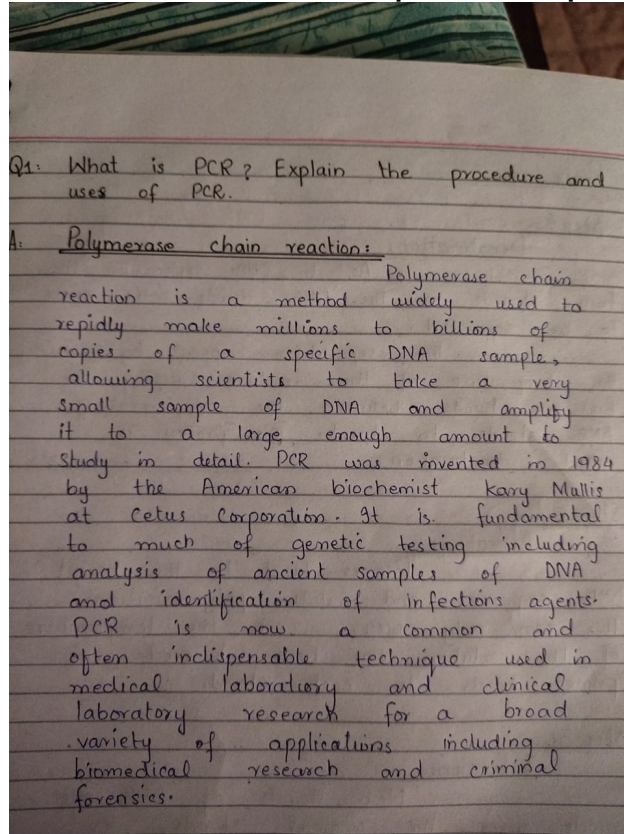 Q1: What is PCR? Explain the procedure and
uses of PCR.
A: Polymerase chain reaction:
Polymerase chain
reaction is a method widely used to
repidly make millions to billions of
copies of a specific DNA sample,
allowing scientists to take a very
small sample of DNA and amplify
it to a large enough amount to
study in detail. PCR was invented in 1984
by the American biochemist Kary Mallis
at Cetus Corporation. It is fundamental
to much of genetic testing including
analysis of ancient samples of DNA
and identification of infections agents.
PCR is now a common and
often indispensable technique used in
medical laboratiory and clinical
laboratory research for a broad
variety of applications including
biomedical research and criminal
forensics.